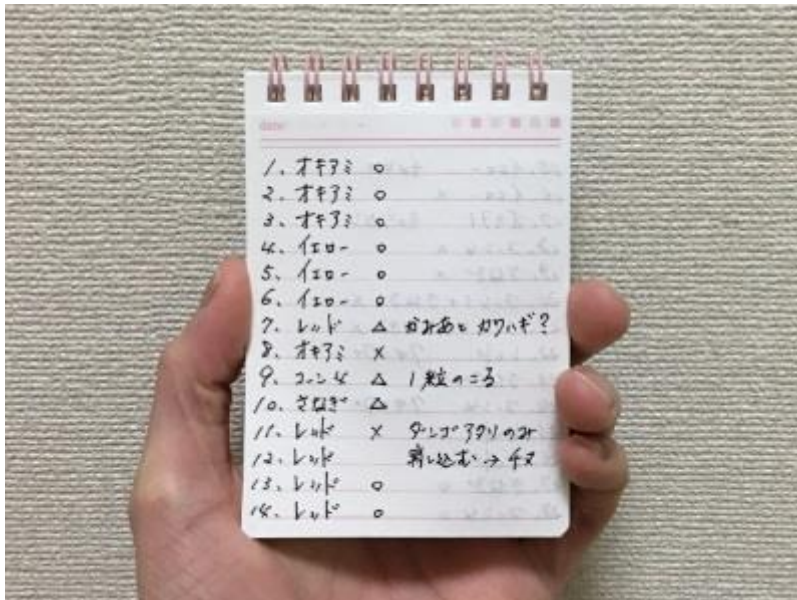 date
1. オキアミ ○
2. オキアミ ○
3. オキアミ ○
4. イエロー ○
5. イエロー ○
6. イエロー ○
7. レッド △ かみあと カワハギ?
8. オキアミ ×
9. コーン4 △ 1粒のこる
10. さなぎ △
11. レッド × ダンゴアタリのみ
12. レッド 消し込む→チヌ
13. レッド ○
14. レッド ○